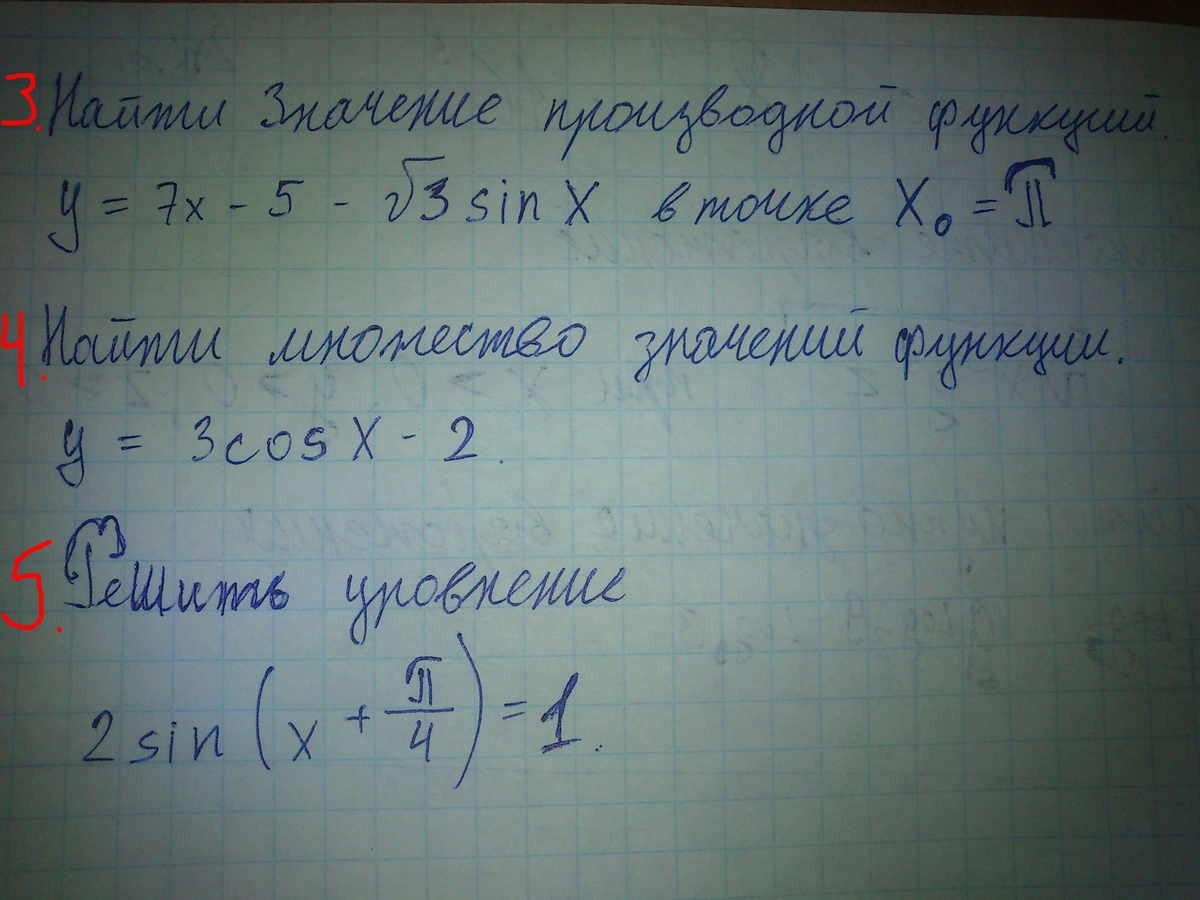 3. Найти Значение производной функций.
y = 7x - 5 - √3 sin X в точке X₀ = π
4. Найти множество значений функции.
y = 3cos X - 2.
5. Решить уровнение
2 sin (x + π/4) = 1.